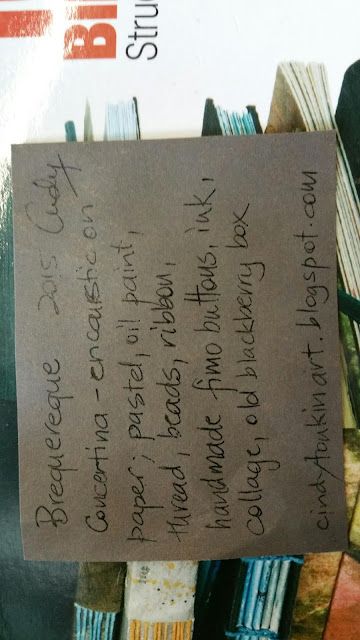 BI
Stru
Brequereque 2015 Cindy
Concertina - encaustic on
paper; pastel, oil paint,
thread, beads, ribbon,
handmade fimo buttons, ink,
collage, old blackberry box
cindytonkinart.blogspot.com